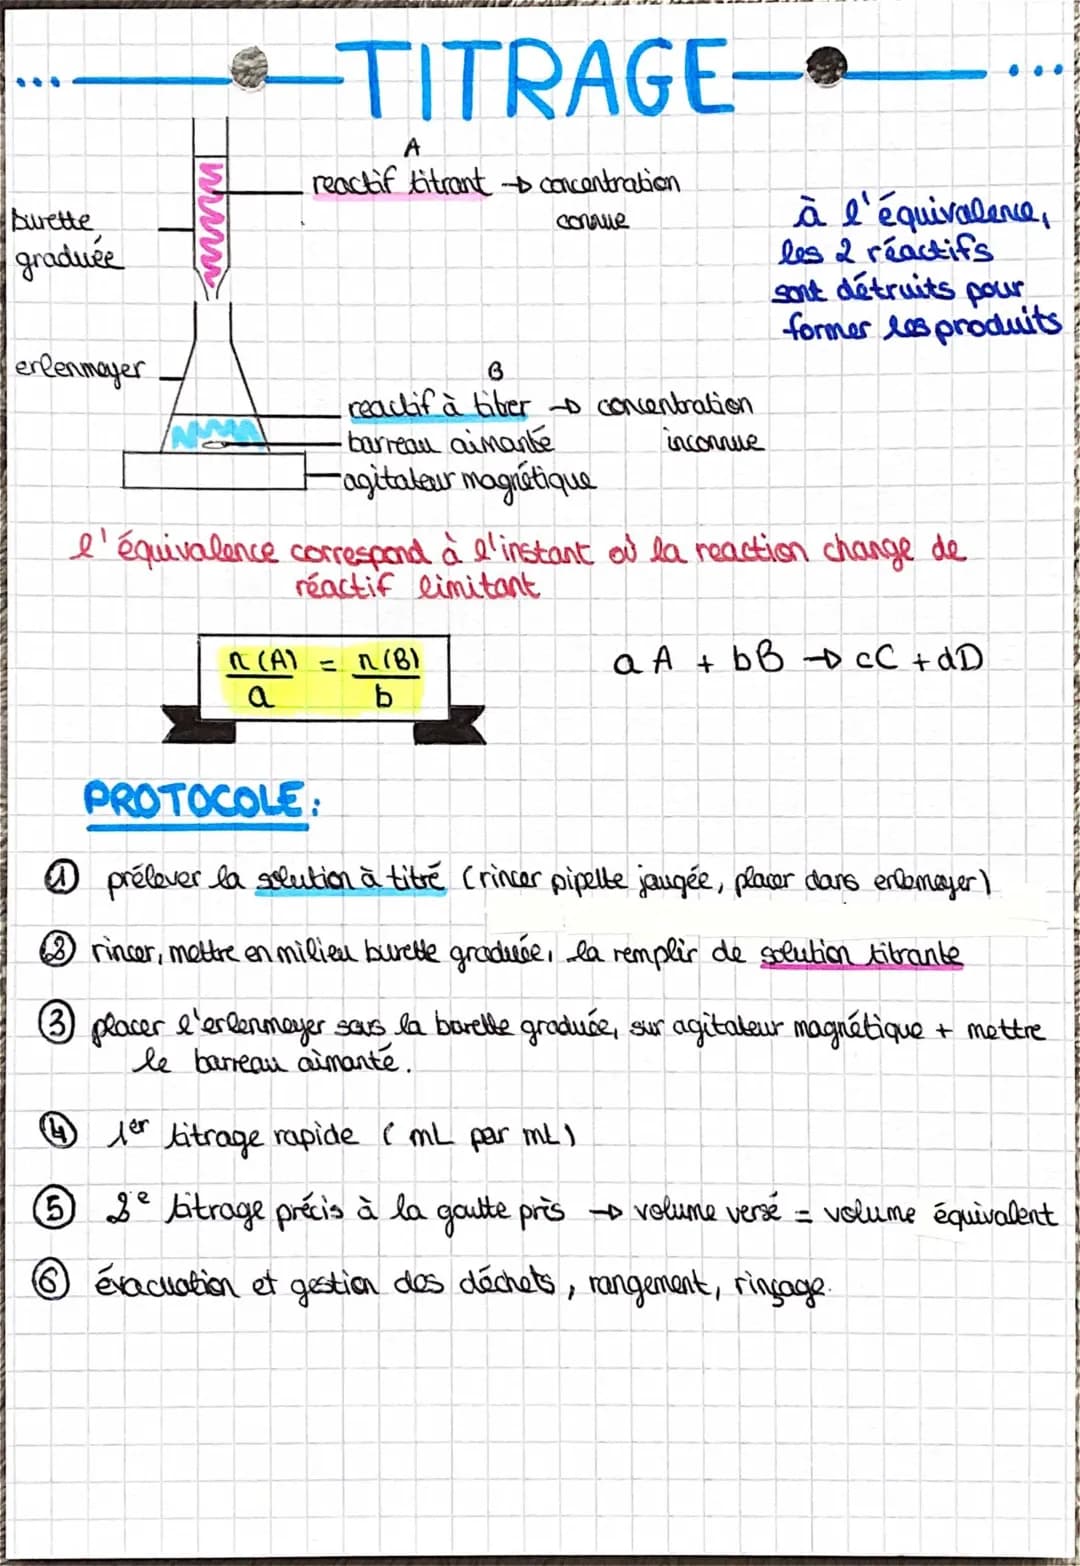 TITRAGE
A
reactif titrant → concentration
connue
burette
graduée
à l'équivalence,
les 2 réactifs
sont détruits pour
former les produits
erlenmayer
B
reactif à titrer → concentration
inconnue
barreau aimanté
agitateur magnétique
l'équivalence correspond à l'instant où la reaction change de
réactif limitant
n(A)/a = n(B)/b
aA + bB → cC + dD
PROTOCOLE:
① prélever la solution à titré (rincer pipette jaugée, placer dans erlenmayer)
② rincer, mettre en milieu burette graduée, la remplir de solution titrante
③ placer l'erlenmayer sous la burette graduée, sur agitateur magnétique + mettre
le barreau aimanté.
④ 1er titrage rapide (mL par mL)
⑤ 2e titrage précis à la goutte près → volume versé = volume équivalent
⑥ évacuation et gestion des déchets, rangement, rinçage.